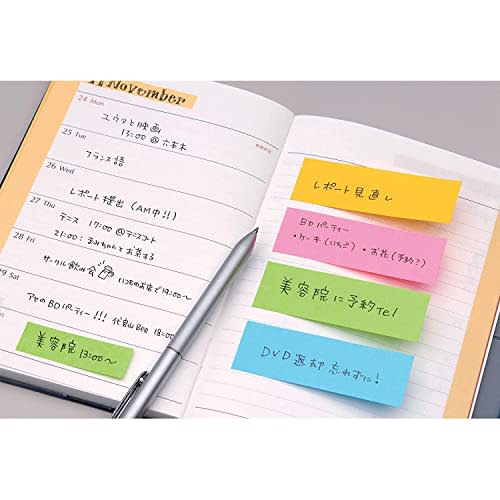 11 November
24 Mon
ユウタと映画
13:00 @ 六本木
25 Tue
フランス語
26 Wed
レポート提出(AM中!!)
27 Thu
テニス 17:00 @テニスコート
21:00: まみちゃんとお茶する
28 Fri
サークル飲み会 いつものお店で19:00〜
29 Sat
アヤのBDパーティー!!! 代官山Bee 18:00
美容院 13:00〜
レポート見直し
BDパーティー
・ケーキ(いちご) ・お花(予約?)
美容院に予約Tel
DVD返却 忘れずに!